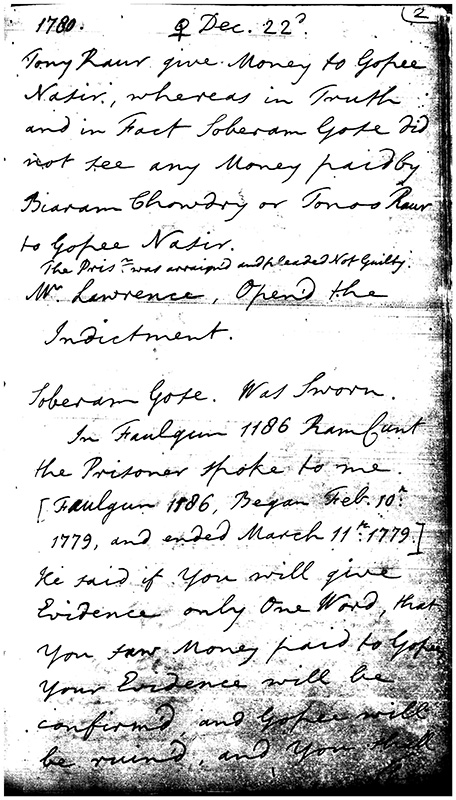 2
1780. ♀ Dec. 22d.
Tony Raur give Money to Gopee
Nasir, whereas in Truth
and in Fact Soberam Gose did
not see any Money paid by
Biaram Chowdry or Tonoo Raur
to Gopee Nasir.
The Prisr. was arraigned and pleaded Not Guilty.
Mr. Lawrence, Open'd the
Indictment.
Soberam Gose. Was Sworn.
In Faulgun 1186 RamCunt
the Prisoner spoke to me.
[Faulgun 1186, Began Feb. 10th.
1779, and ended March 11th. 1779.]
He said if You will give
Evidence only One Word, that
You saw Money paid to Gopee
Your Evidence will be
confirm'd, and Gopee will
be ruin'd, and You shall